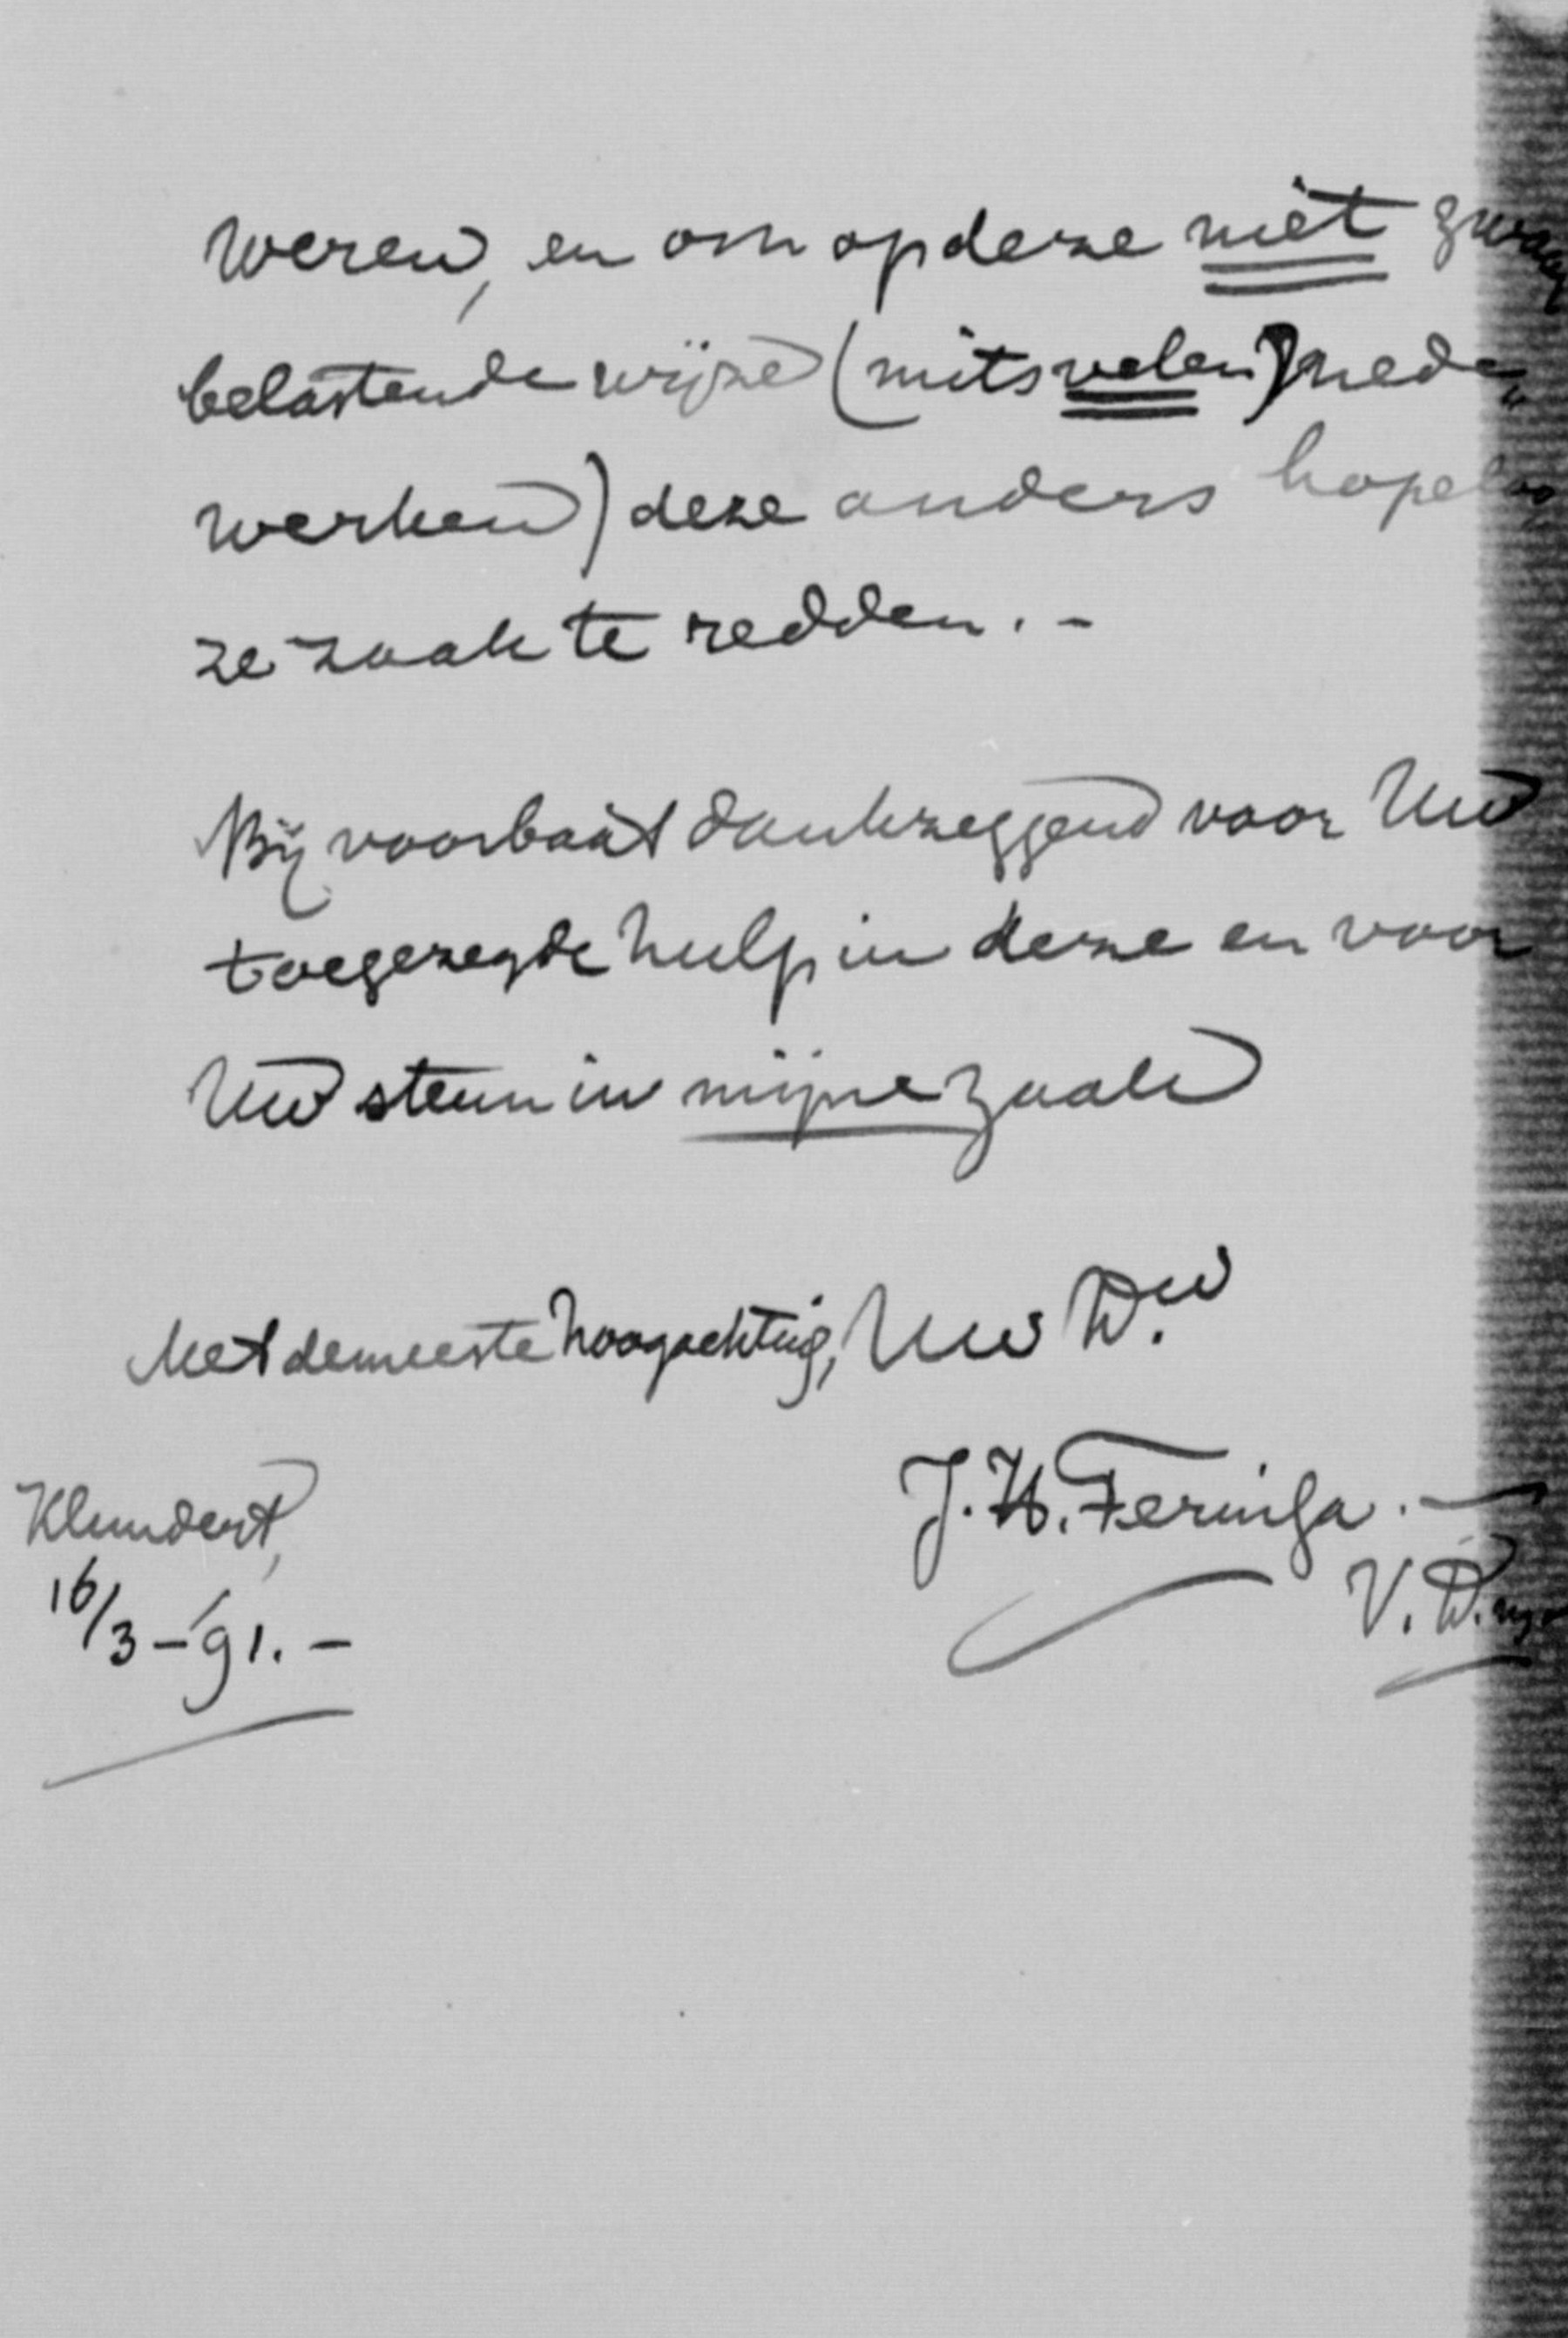 weren, en om op deze niet zwaar
belastende wijze (mits velen mede
werken) deze anders hopelo
ze zaak te redden. -
Bij voorbaat dankzeggend voor Uw
toegezegde hulp in deze en voor
Uw steun in mijne zaak
Met de meeste hoogachting, Uw Dw.
J. H. Feringa. -
V. D. M.
Klundert,
16/3 - '91. -